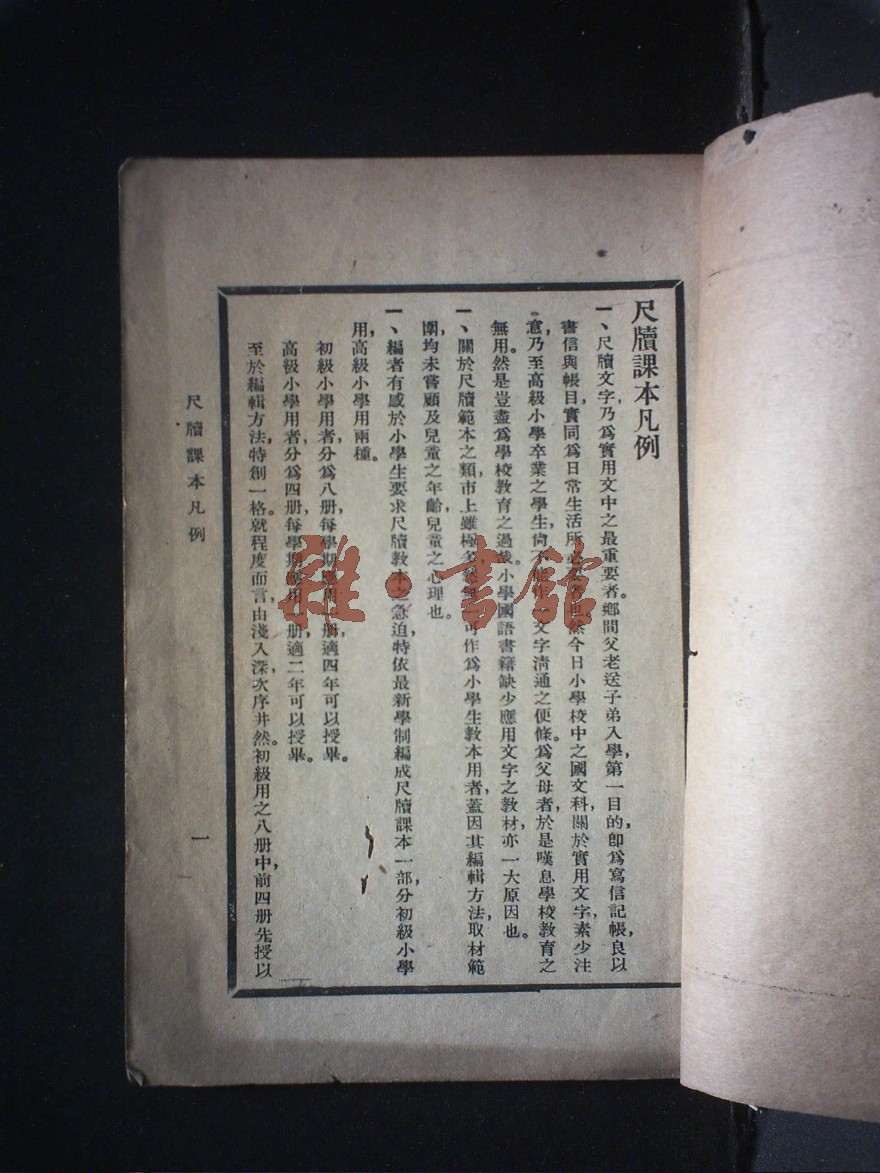 尺牘課本凡例
一、尺牘文字，乃爲實用文中之最重要者。鄉間父老送子弟入學，第一目的，卽爲寫信記帳，良以
書信與帳目，實同爲日常生活所必者也。然今日小學校中之國文科，關於實用文字，素少注
意，乃至高級小學卒業之學生，尙不能作文字淸通之便條。爲父母者，於是嘆息學校敎育之
無用。然是豈盡爲學校敎育之過哉。小學國語書籍缺少應用文字之敎材，亦一大原因也。
一、關於尺牘範本之類，市上雖極多，可作爲小學生敎本用者，蓋因其編輯方法，取材範
圍，均未嘗顧及兒童之年齡，兒童之心理也。
一、編者有感於小學生要求尺牘敎本之急迫，特依最新學制編成尺牘課本一部，分初級小學
用，高級小學用兩種。
初級小學用者，分爲八册，每學期用一册，適四年可以授畢。
高級小學用者，分爲四册，每學期用一册，適二年可以授畢。
至於編輯方法，特創一格。就程度而言，由淺入深，次序井然。初級用之八册中，前四册先授以
尺牘課本凡例
一
雜·書館